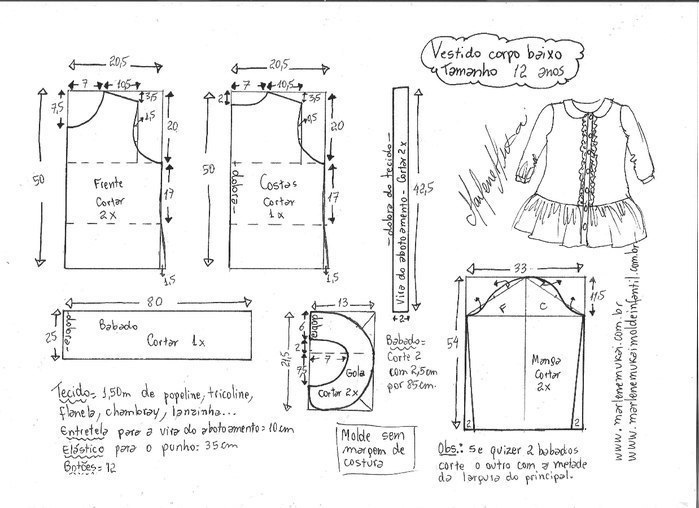 Vestido corpo baixo
Tamanho 12 anos
20,5
7
10,5
3,5
7,5
1,5
20
50
17
Frente
Cortar
2x
1,5
20,5
7
10,5
2
3,5
1,5
20
50
17
dobra
Costas
Cortar
1x
1,5
dobra do tecido
Vira do abotoamento - Cortar 2x
42,5
2
Marlene Mukai
80
25
dobra
Babado
Cortar 1x
13
21,5
6
dobra
2
7
7,5
Gola
Cortar 2x
Babado=
Corte 2
com 2,5cm
por 85cm.
33
11,5
F
C
54
Manga
Cortar
2x
2
2
www.marlenemukai.com.br
www.marlenemukaimoldeinfantil.com.br
Tecido= 1,50m de popeline, tricoline,
flanela, chambray, lanzinha...
Entretela para a vira do abotoamento=10cm
Elástico para o punho: 35cm
Botões= 12
Molde sem
margem de
costura
Obs.: Se quizer 2 babados
corte o outro com a metade
da largura do principal.